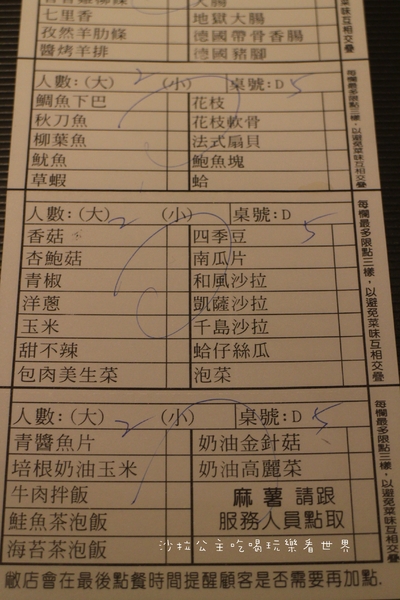 大腸
七里香 地獄大腸
孜然羊肋條 德國帶骨香腸
醬烤羊排 德國豬腳
菜味互相交疊
人數:(大) 2 (小) 桌號:D 5
鯛魚下巴 花枝
秋刀魚 花枝軟骨
柳葉魚 法式扇貝
魷魚 鮑魚塊
草蝦 蛤
每欄最多限點三樣，以避免菜味互相交疊
人數:(大) 2 (小) 桌號:D 5
香菇 四季豆
杏鮑菇 南瓜片
青椒 和風沙拉
洋蔥 凱薩沙拉
玉米 千島沙拉
甜不辣 蛤仔絲瓜
包肉美生菜 泡菜
每欄最多限點三樣，以避免菜味互相交疊
人數:(大) 2 (小) 桌號:D 5
青醬魚片 奶油金針菇
培根奶油玉米 奶油高麗菜
牛肉拌飯 麻薯 請跟
鮭魚茶泡飯 服務人員點取
海苔茶泡飯
每欄最多限點三樣，以避免菜味互相交疊
沙拉公主吃喝玩樂看世界
敝店會在最後點餐時間提醒顧客是否需要再加點.